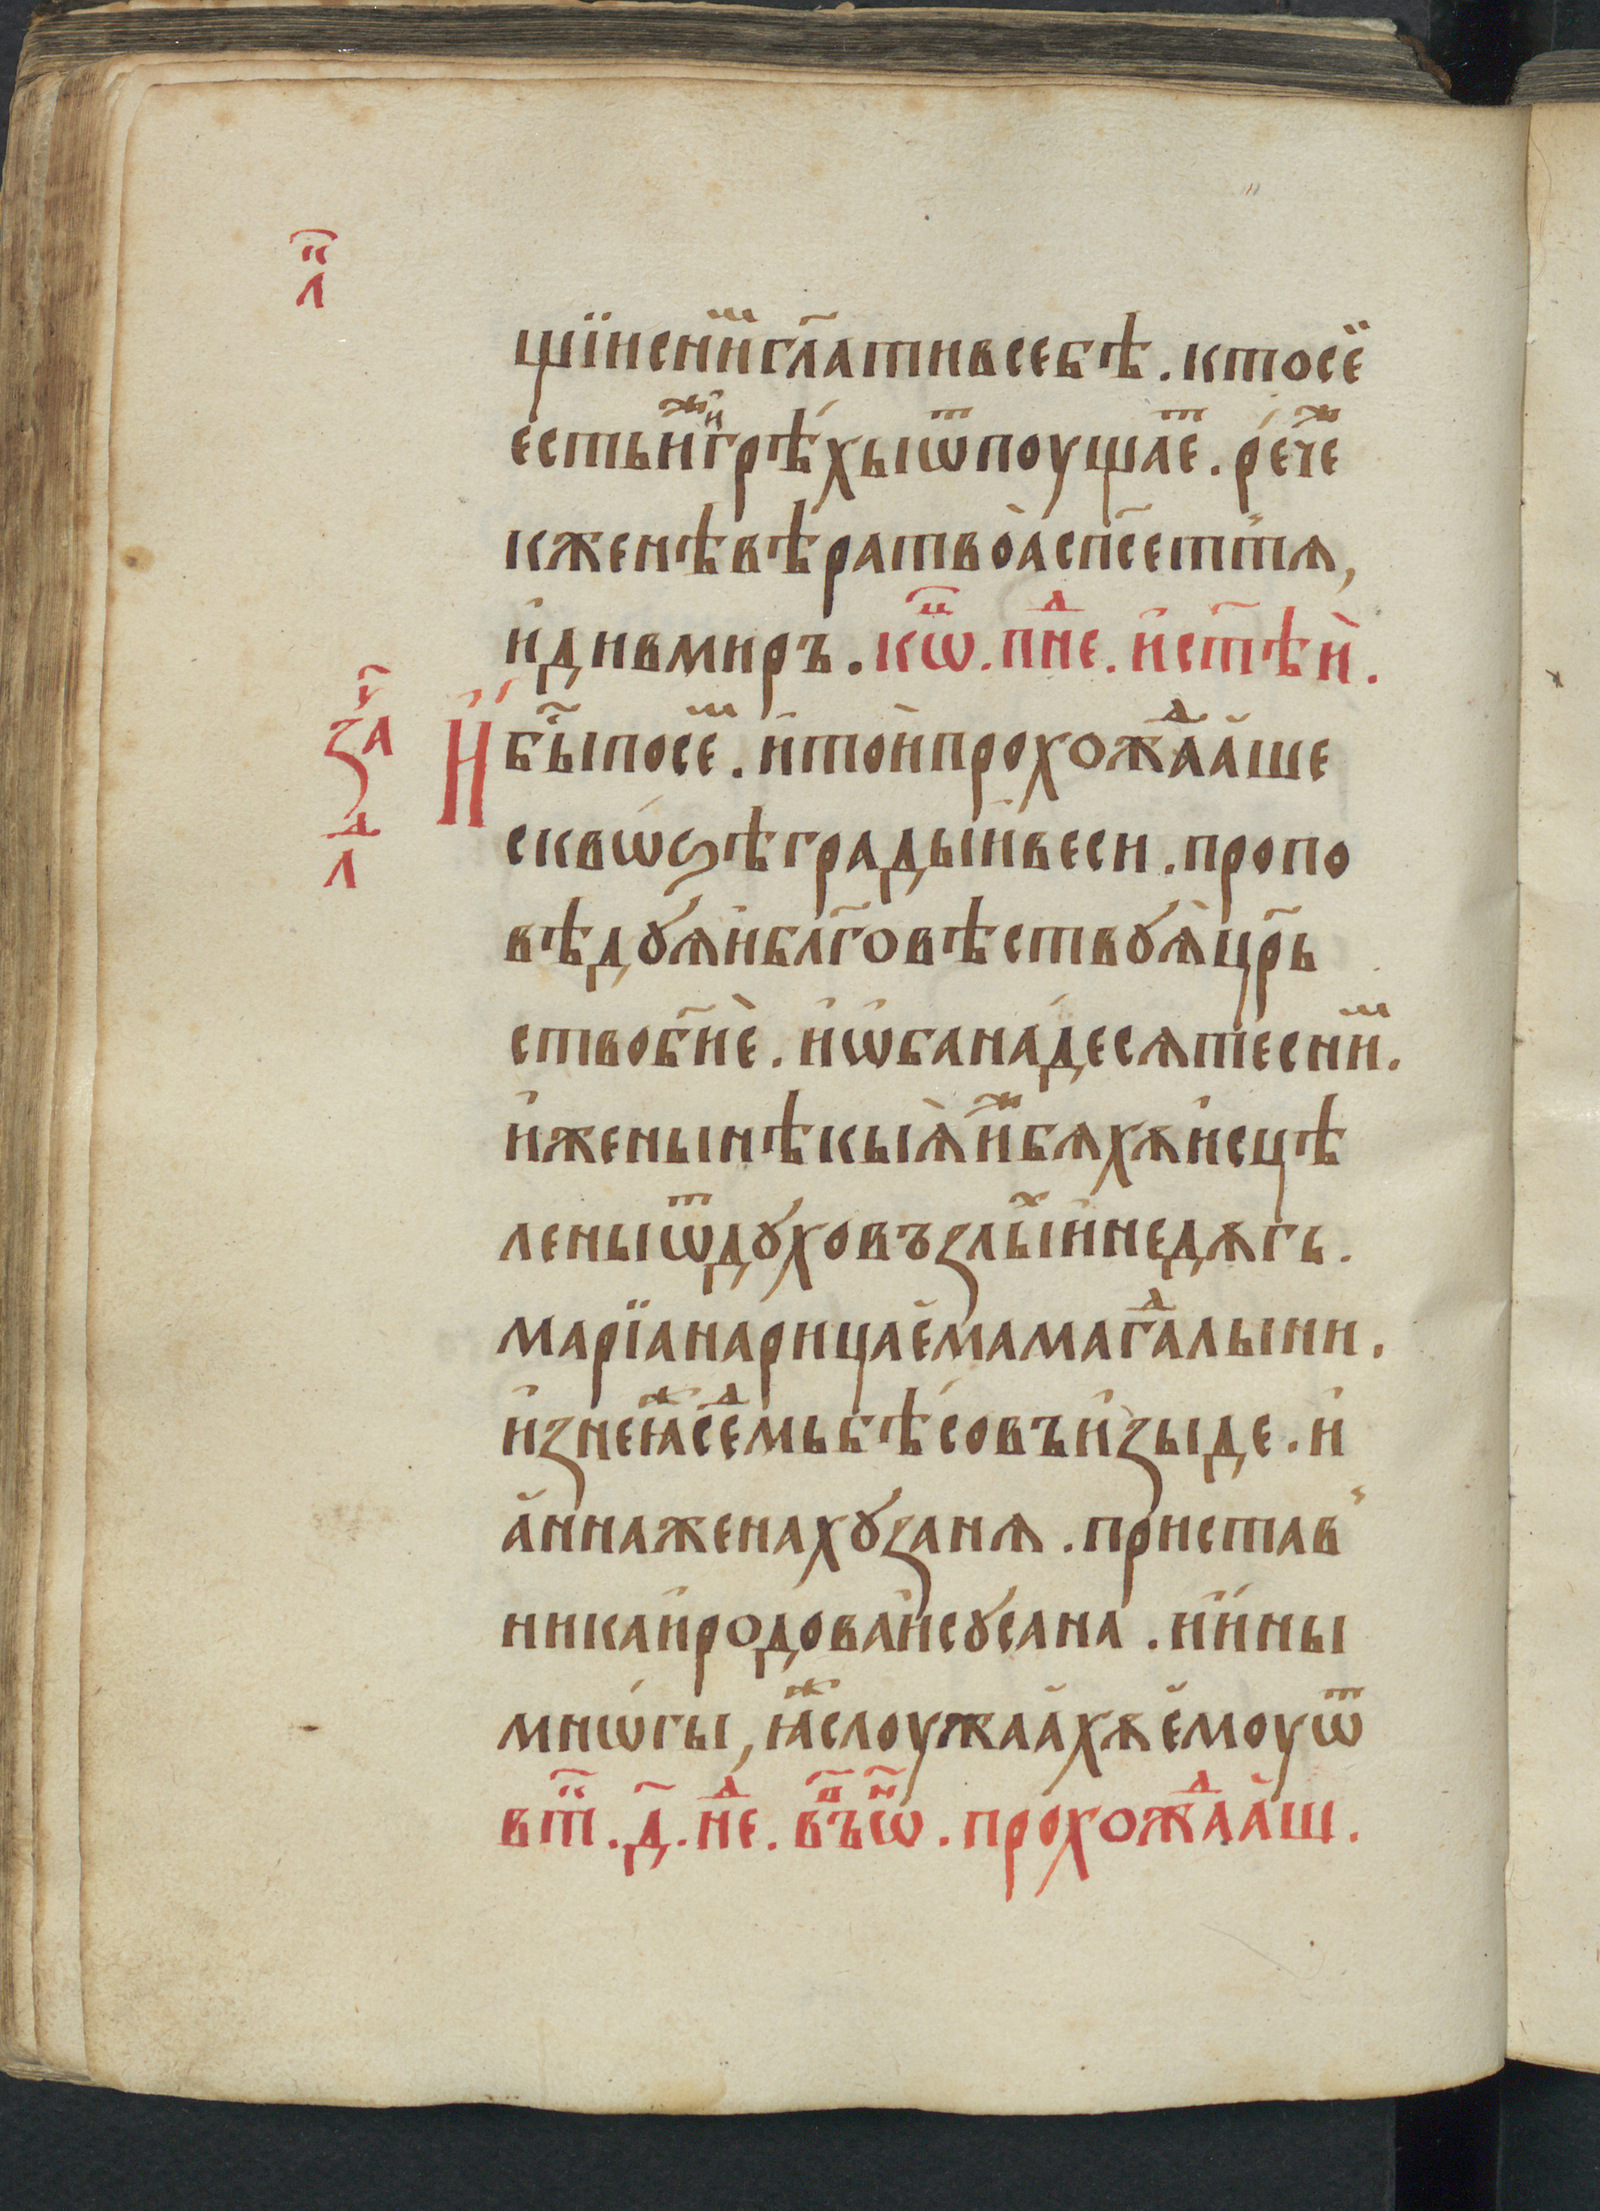 л҃и
щїи с ни́ⷨ гл҃ати в себѣ . кто сє̈
єсть и́ⷤ и грѣ́хы ѿпоущаеⷮ . ре́чеⷤ
к женѣ вѣра твоа̀ сп҃сет тѧ ,
и҆ди в миръ . кѡⷰ҇ . пⷩ҇еⷣ . и҆ ст҃ѣй .
за҃ⷱ҇
И҆ бы́ⷭ҇ по сеⷨ . и҆ той прохожⷣаа҆ше
л҃д
сквѡ́ѕѣ грады и҆ веси . пропо
вѣдꙋѧ и҆ бл҃говѣствꙋѧ̀ цр҃ь
ство бж҃иѐ . и҆ ѡ҆банадесѧте с ниⷨ .
и҆ жены нѣкыѧ̀ и҆ⷤ бѧхѫ и҆сцѣ
лены ѿ дꙋховъ злыⷯ и҆ недѫгь .
марїа нарицае҆ма магⷣалыни .
и҆з неѧ҆ⷤ сеⷣмь бѣ́совъ и҆зыде . и҆
а҆нна жена хꙋзанѧ . пристав
ника и҆родова и҆ сꙋсана . и҆ и҆ны
мнѡ́гы , ꙗ҆ⷤ слоужаа҆хѫ е҆моу ѿ
вт҃ . д҃ . нⷣе . въ ѡ . прохожⷣаа҆ш .